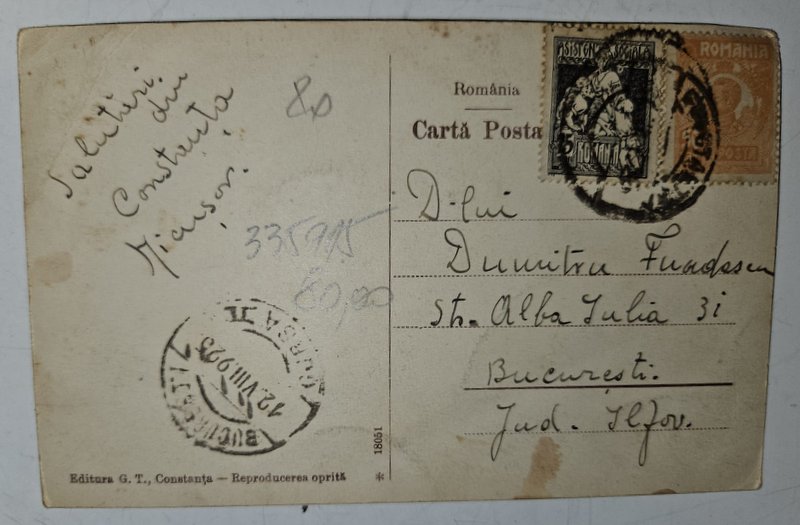 Salutări
din
Constanța
80
335915
80,00
BUCUREȘTI
12.VIII.925
CURSA II
Editura G. T., Constanța — Reproducerea oprită
*
18051
România
Cartă Posta
ASISTENȚA SOCIALĂ
ROMANIA
ROMANIA
POSTA
D-lui
Dumitru
Str. Alba Iulia 31
București.
Jud. Ilfov.